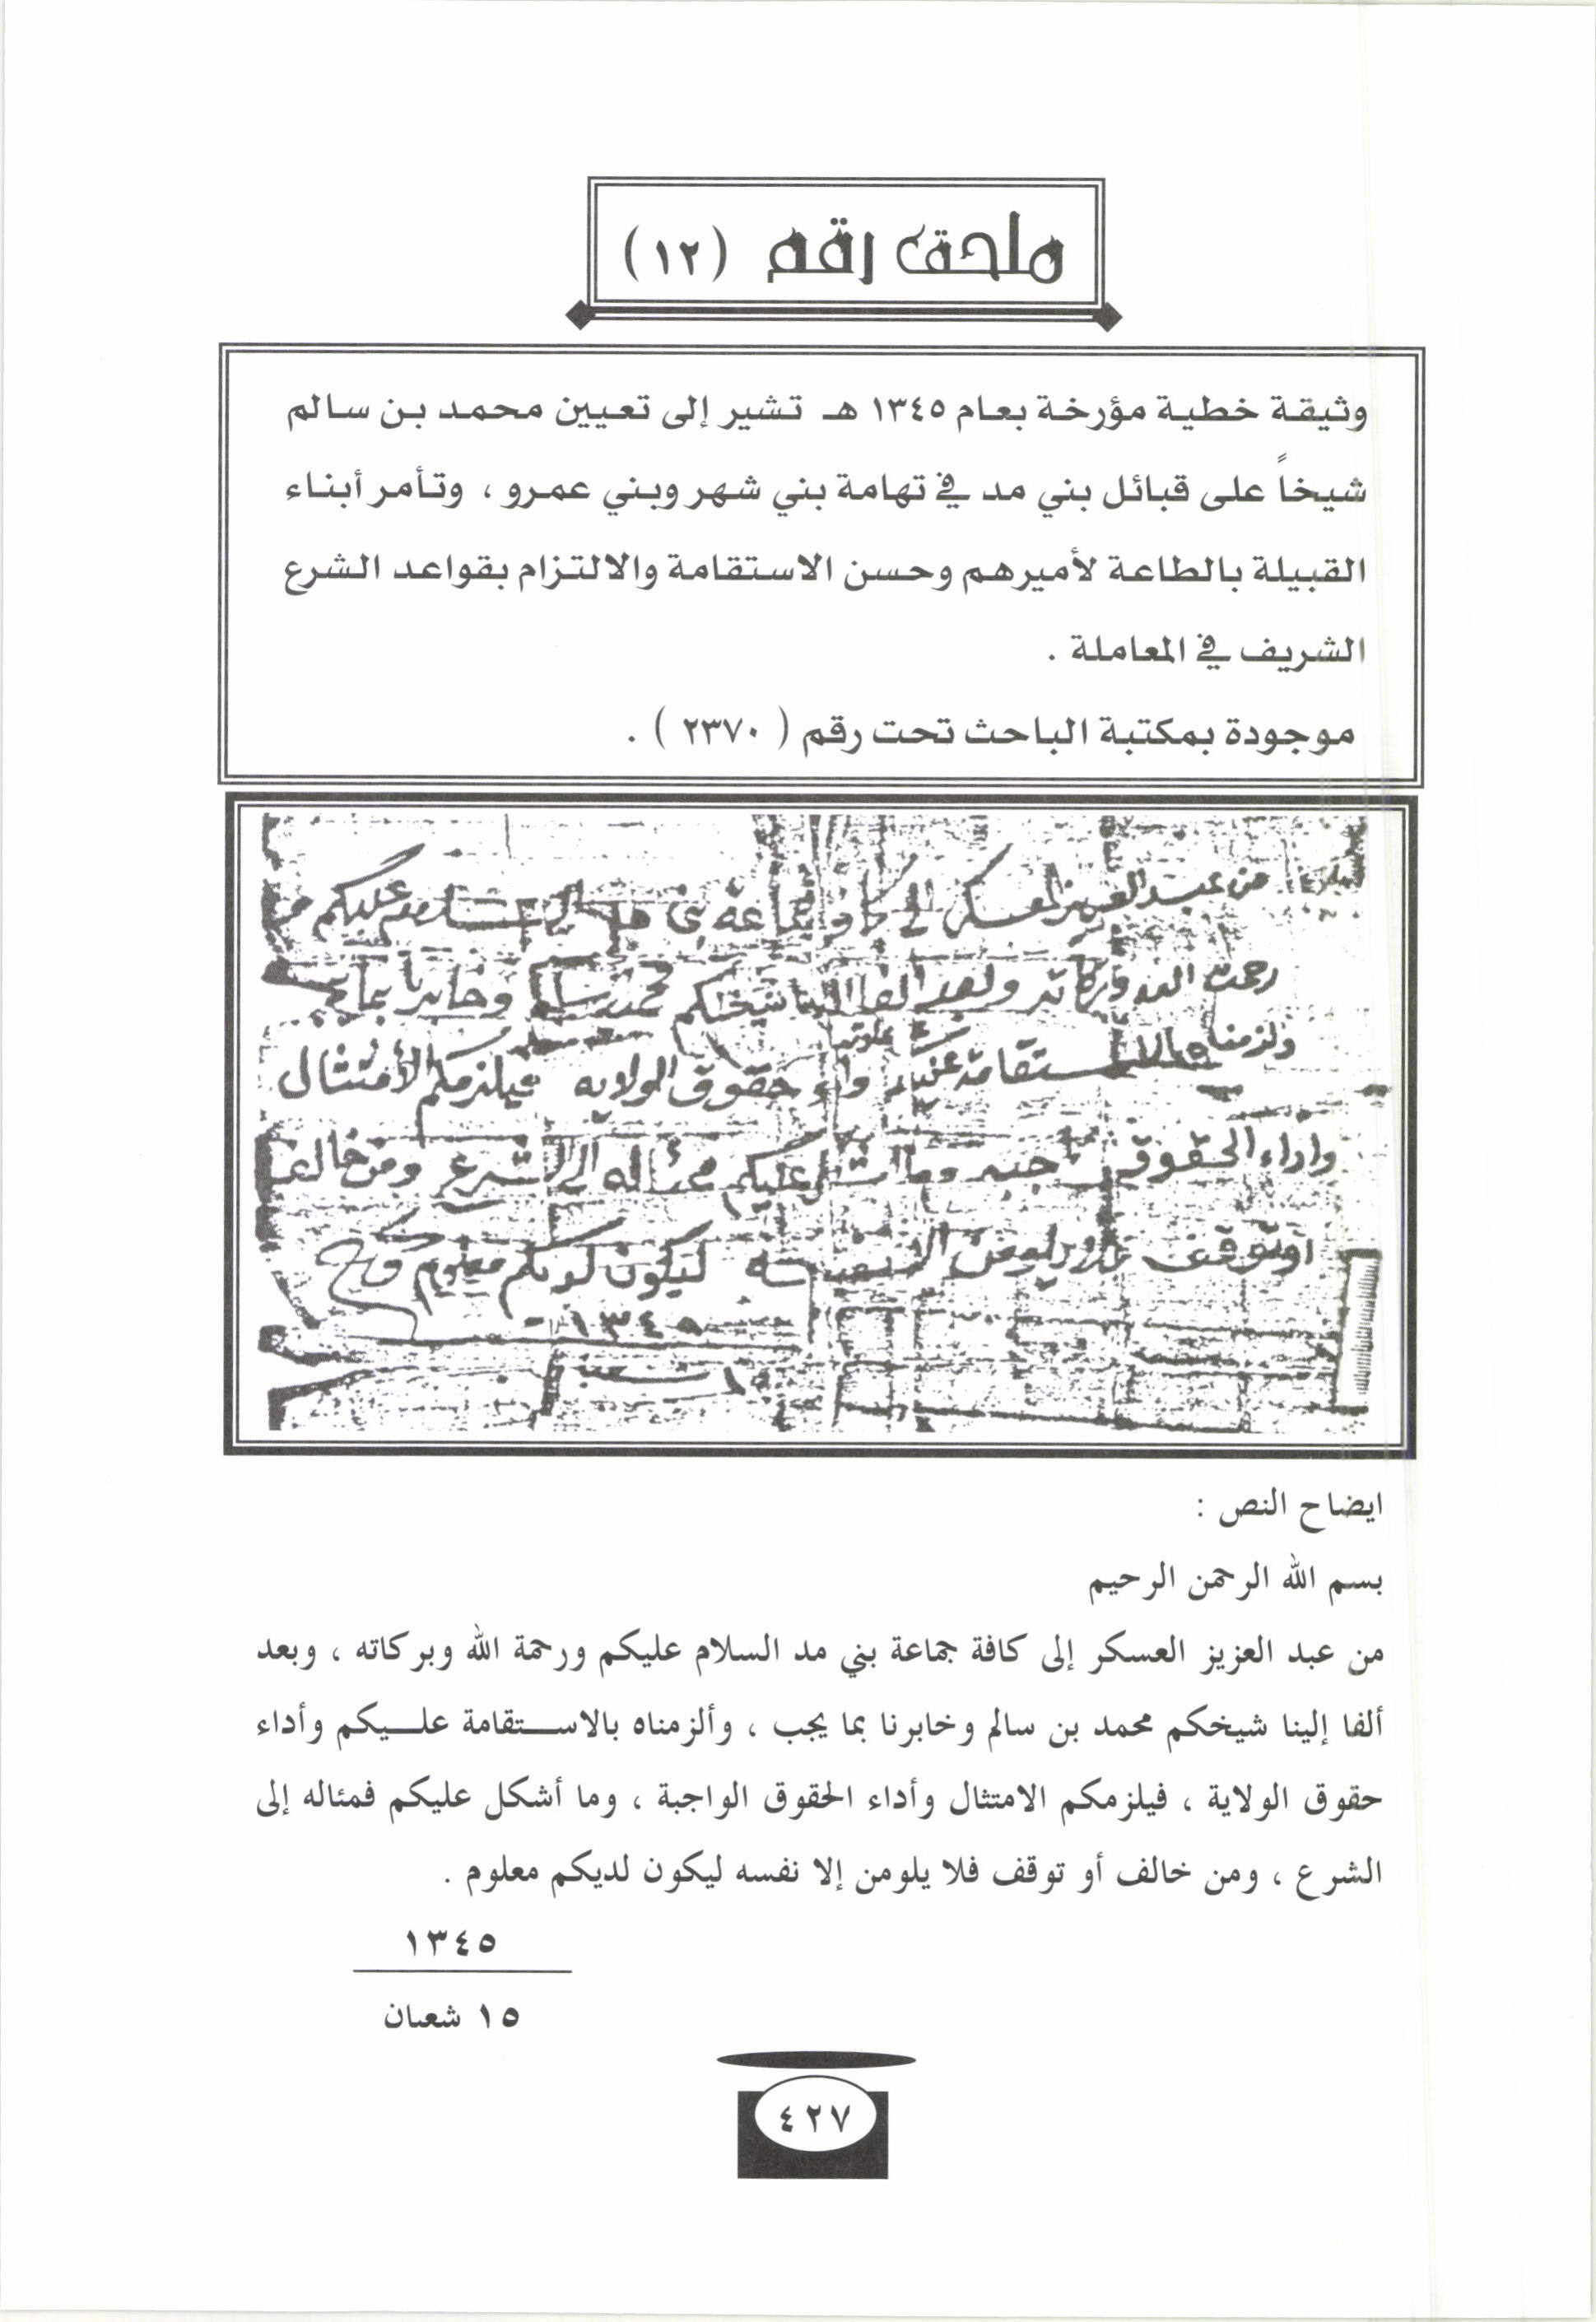 ملحق رقم (١٢)
وثيقة خطية مؤرخة بعام ١٣٤٥ هـ تشير إلى تعيين محمد بن سالم
شيخاً على قبائل بني مد في تهامة بني شهر وبني عمرو ، وتأمر أبناء
القبيلة بالطاعة لأميرهم وحسن الاستقامة والالتزام بقواعد الشرع
الشريف في المعاملة .
موجودة بمكتبة الباحث تحت رقم ( ٢٣٧٠ ) .
من عبد العزيز العسكر إلى كافة جماعة بني مد السلام عليكم
رحمت الله وبركاته وبعد الفا الينا شيخكم محمد بن سالم وخابرنا بما يجب
ولزمناه بالاستقامة عليكم واداء حقوق الولايه فيلزمكم الأمتثال
واداء الحقوق وما اشكل عليكم فمئاله الى الشرع ومن خالف
اوتوقف فلا يلومن الا نفسه ليكون لديكم معلوم
١٣٤٥
١٥ شعبان
ايضاح النص :
بسم الله الرحمن الرحيم
من عبد العزيز العسكر إلى كافة جماعة بني مد السلام عليكم ورحمة الله وبركاته ، وبعد
ألفا إلينا شيخكم محمد بن سالم وخابرنا بما يجب ، وألزمناه بالاستقامة عليكم وأداء
حقوق الولاية ، فيلزمكم الامتثال وأداء الحقوق الواجبة ، وما أشكل عليكم فمئاله إلى
الشرع ، ومن خالف أو توقف فلا يلومن إلا نفسه ليكون لديكم معلوم .
١٣٤٥
١٥ شعبان
٤٢٧